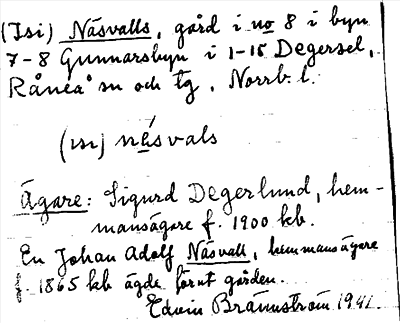 (Isi) Näsvalls, gård i no 8 i byn
7-8 Gunnarsbyn i 1-15 Degersel,
Råneå sn och tg, Norrb. l.
(isi) nésvals
Ägare: Sigurd Degerlund, hem-
mansägare f. 1900 kb.
En Johan Adolf Näsvall, hemmansägare
f. 1865 kb ägde förut gården.
Edvin Brännström 1941.